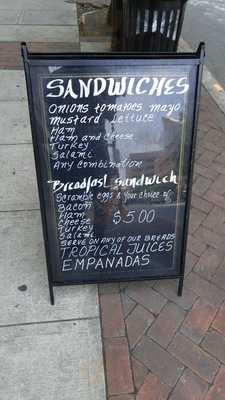 SANDWICHES
Onions tomatoes mayo
Mustard Lettuce
Ham
Ham and Cheese
Turkey
Salami
Any Combination
Breadfast Sandwich
Scramble eggs & your choice of
Bacon
Ham
Cheese
Turkey
Salami
$5.00
SERVE ON ANY OF OUR BREADS
TROPICAL JUICES
EMPANADAS